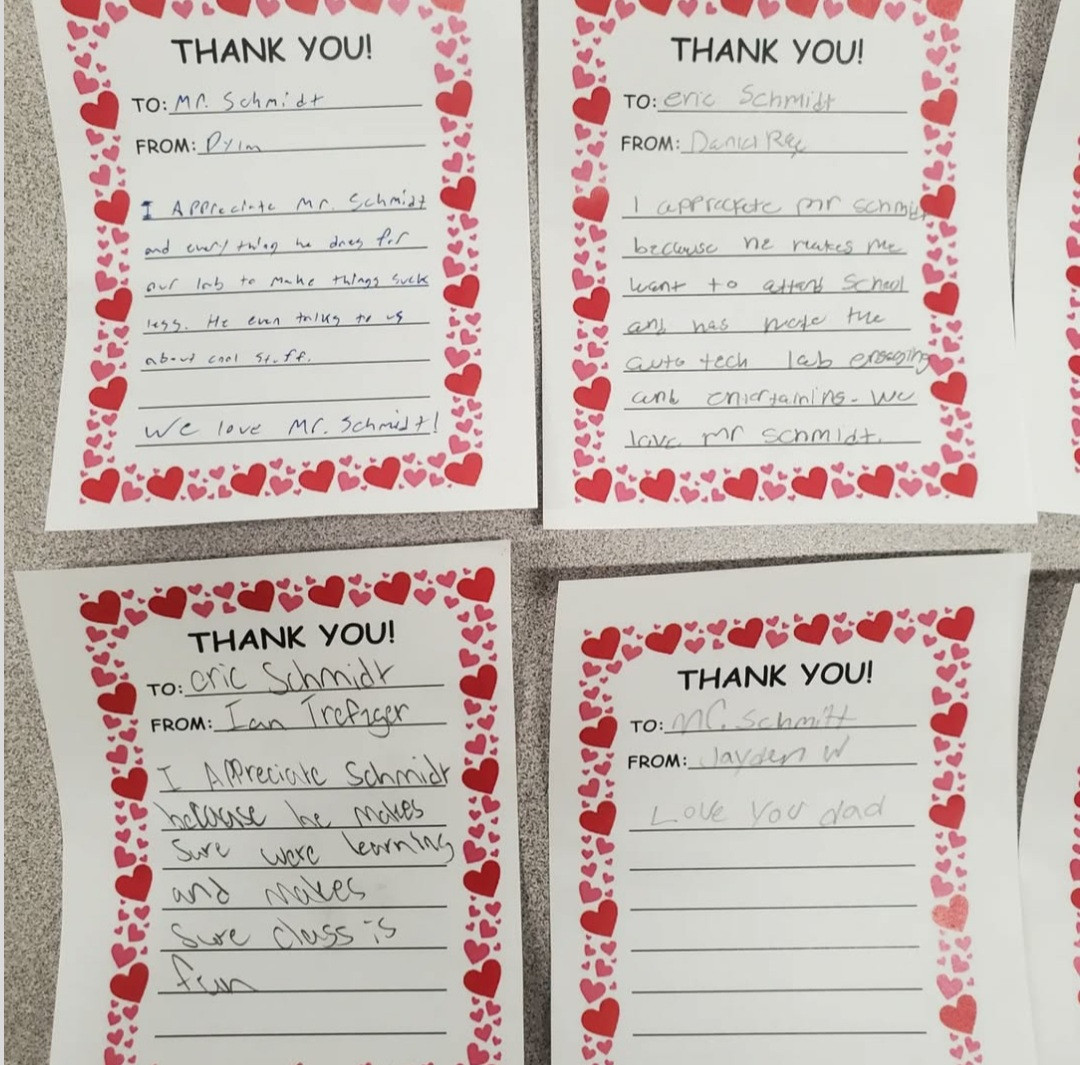 THANK YOU!
TO: Mr. Schmidt
FROM: Dylm
I Appreciate Mr. Schmidt
and everything he does for
our lab to make things suck
less. He even talks to us
about cool stuff.
We love Mr. Schmidt!
THANK YOU!
TO: eric Schmidt
FROM: Daniel
I apprecfete mr schmidt
because he makes me
want to attend School
and has made the
auto tech lab engaging
and entertaining. We
love mr schmidt.
THANK YOU!
TO: eric Schmidt
FROM: Ian Trefzger
I Appreciate Schmidt
because he makes
Sure were learning
and makes
Sure class is
fun
THANK YOU!
TO: Mr. Schmitt
FROM: Jayden W
Love you dad